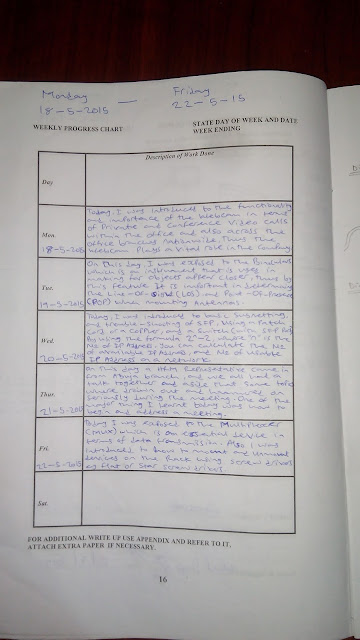 Monday — Friday
18-5-2015 22-5-15
WEEKLY PROGRESS CHART
STATE DAY OF WEEK AND DATE
WEEK ENDING
Day
Description of Work Done
Mon.
18-5-2015
Today, I was introduced to the functionality
and importance of the Webcam in terms
of Private and Conference Video calls
within the office and also across the
office branches nationwide. Thus the
webcam plays a vital role in the Company
Tue.
19-5-2015
On this day, I was exposed to the Binoculars
which is an instrument that is used in
making far objects appear close. Thus by
this feature it is important in determining
the Line-Of-Sight (LOS) and Point-Of-Presence
(POP) when mounting antennas.
Wed.
20-5-2015
Today, I was introduced to basic subnetting,
and trouble-shooting of SFP, using a Patch
Cord or a Coupler, and a Switch
By using the formula 2ⁿ-2, where "n" is the
No of IP Address. You can calculate the No
of available IP Address, and No of usable
IP Address on a network.
Thur.
21-5-2015
On this day a Representative came in
from Abuja branch, and we all had a
talk together and aside that some
where drawn out and
Seriously during the meeting. One of the
major thing I learnt today was how to
begin and address a meeting.
Fri.
22-5-2015
Today I was exposed to the Multiplexer
(MUX) which is an essential device in
terms of data transmission. Also, I was
introduced to how to mount and unmount
devices on the Rack using screw drivers
eg Flat or Star screw drivers.
Sat.
FOR ADDITIONAL WRITE UP USE APPENDIX AND REFER TO IT.
ATTACH EXTRA PAPER IF NECESSARY.
16